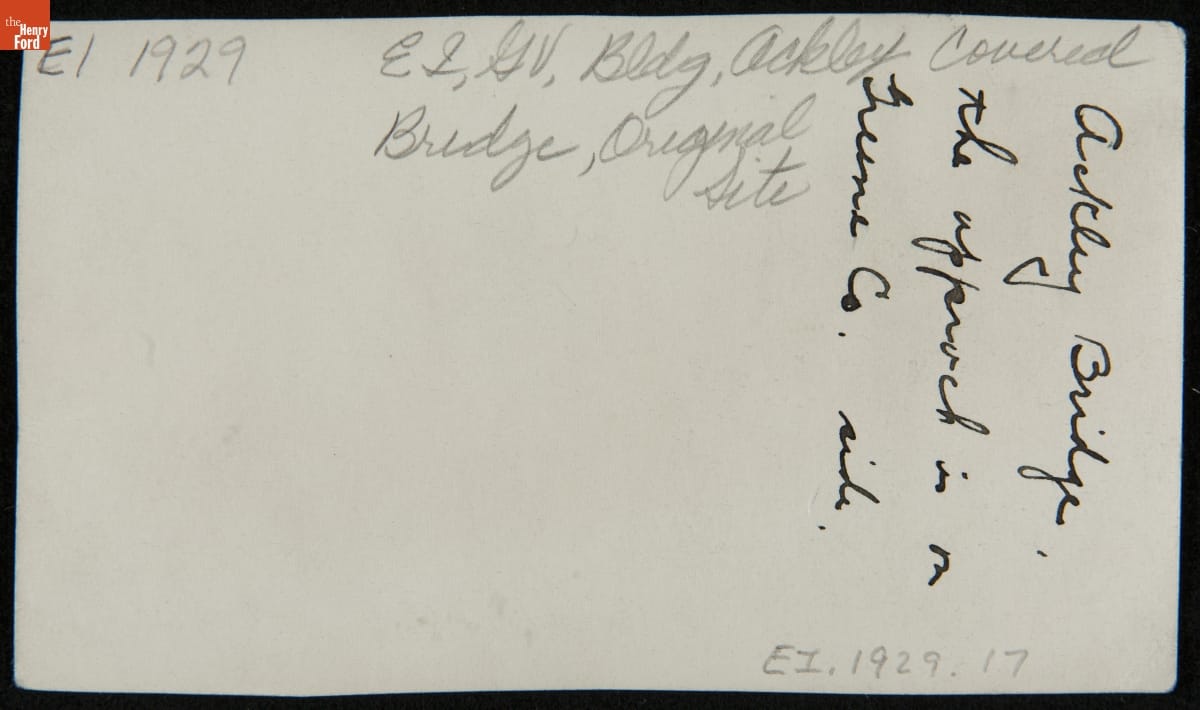 the
Henry
Ford
EI 1929
EI, GV, Bldg, Ackley Covered
Bridge, Original
Site
Ackley Bridge.
the approach is on
Greene Co. side.
EI.1929.17